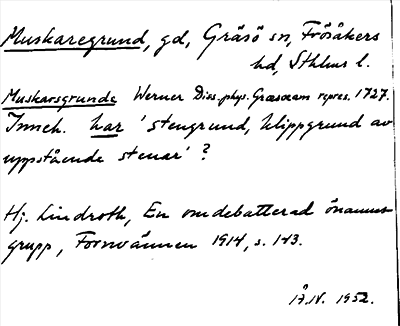 Muskaregrund, gd, Gräsö sn, Frösåkers
hd, Sthlms l.
Muskarsgrunde Werner Diss. phys. Græsoeam repres. 1727.
Inneh. har 'stengrund, klippgrund av
uppstående stenar'?
Hj. Lindroth, En omdebatterad önamns-
grupp, Fornvännen 1914, s. 143.
17.IV. 1952.